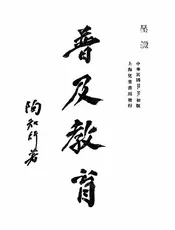 普及教育
陶知行著
中華民國
初版
上海兒童書局發行